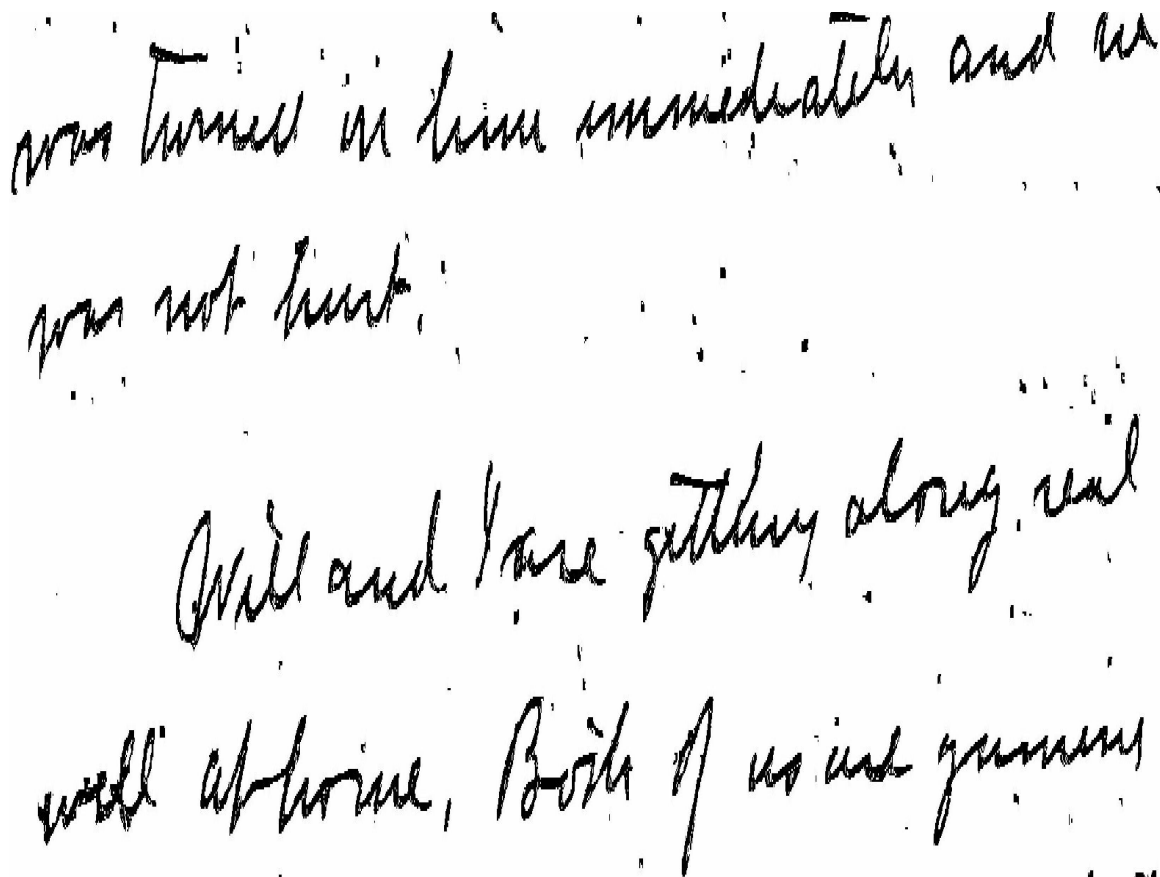 was turned in him immediately and
was not hurt.
Will and I are getting along real
well at home, Both of us are